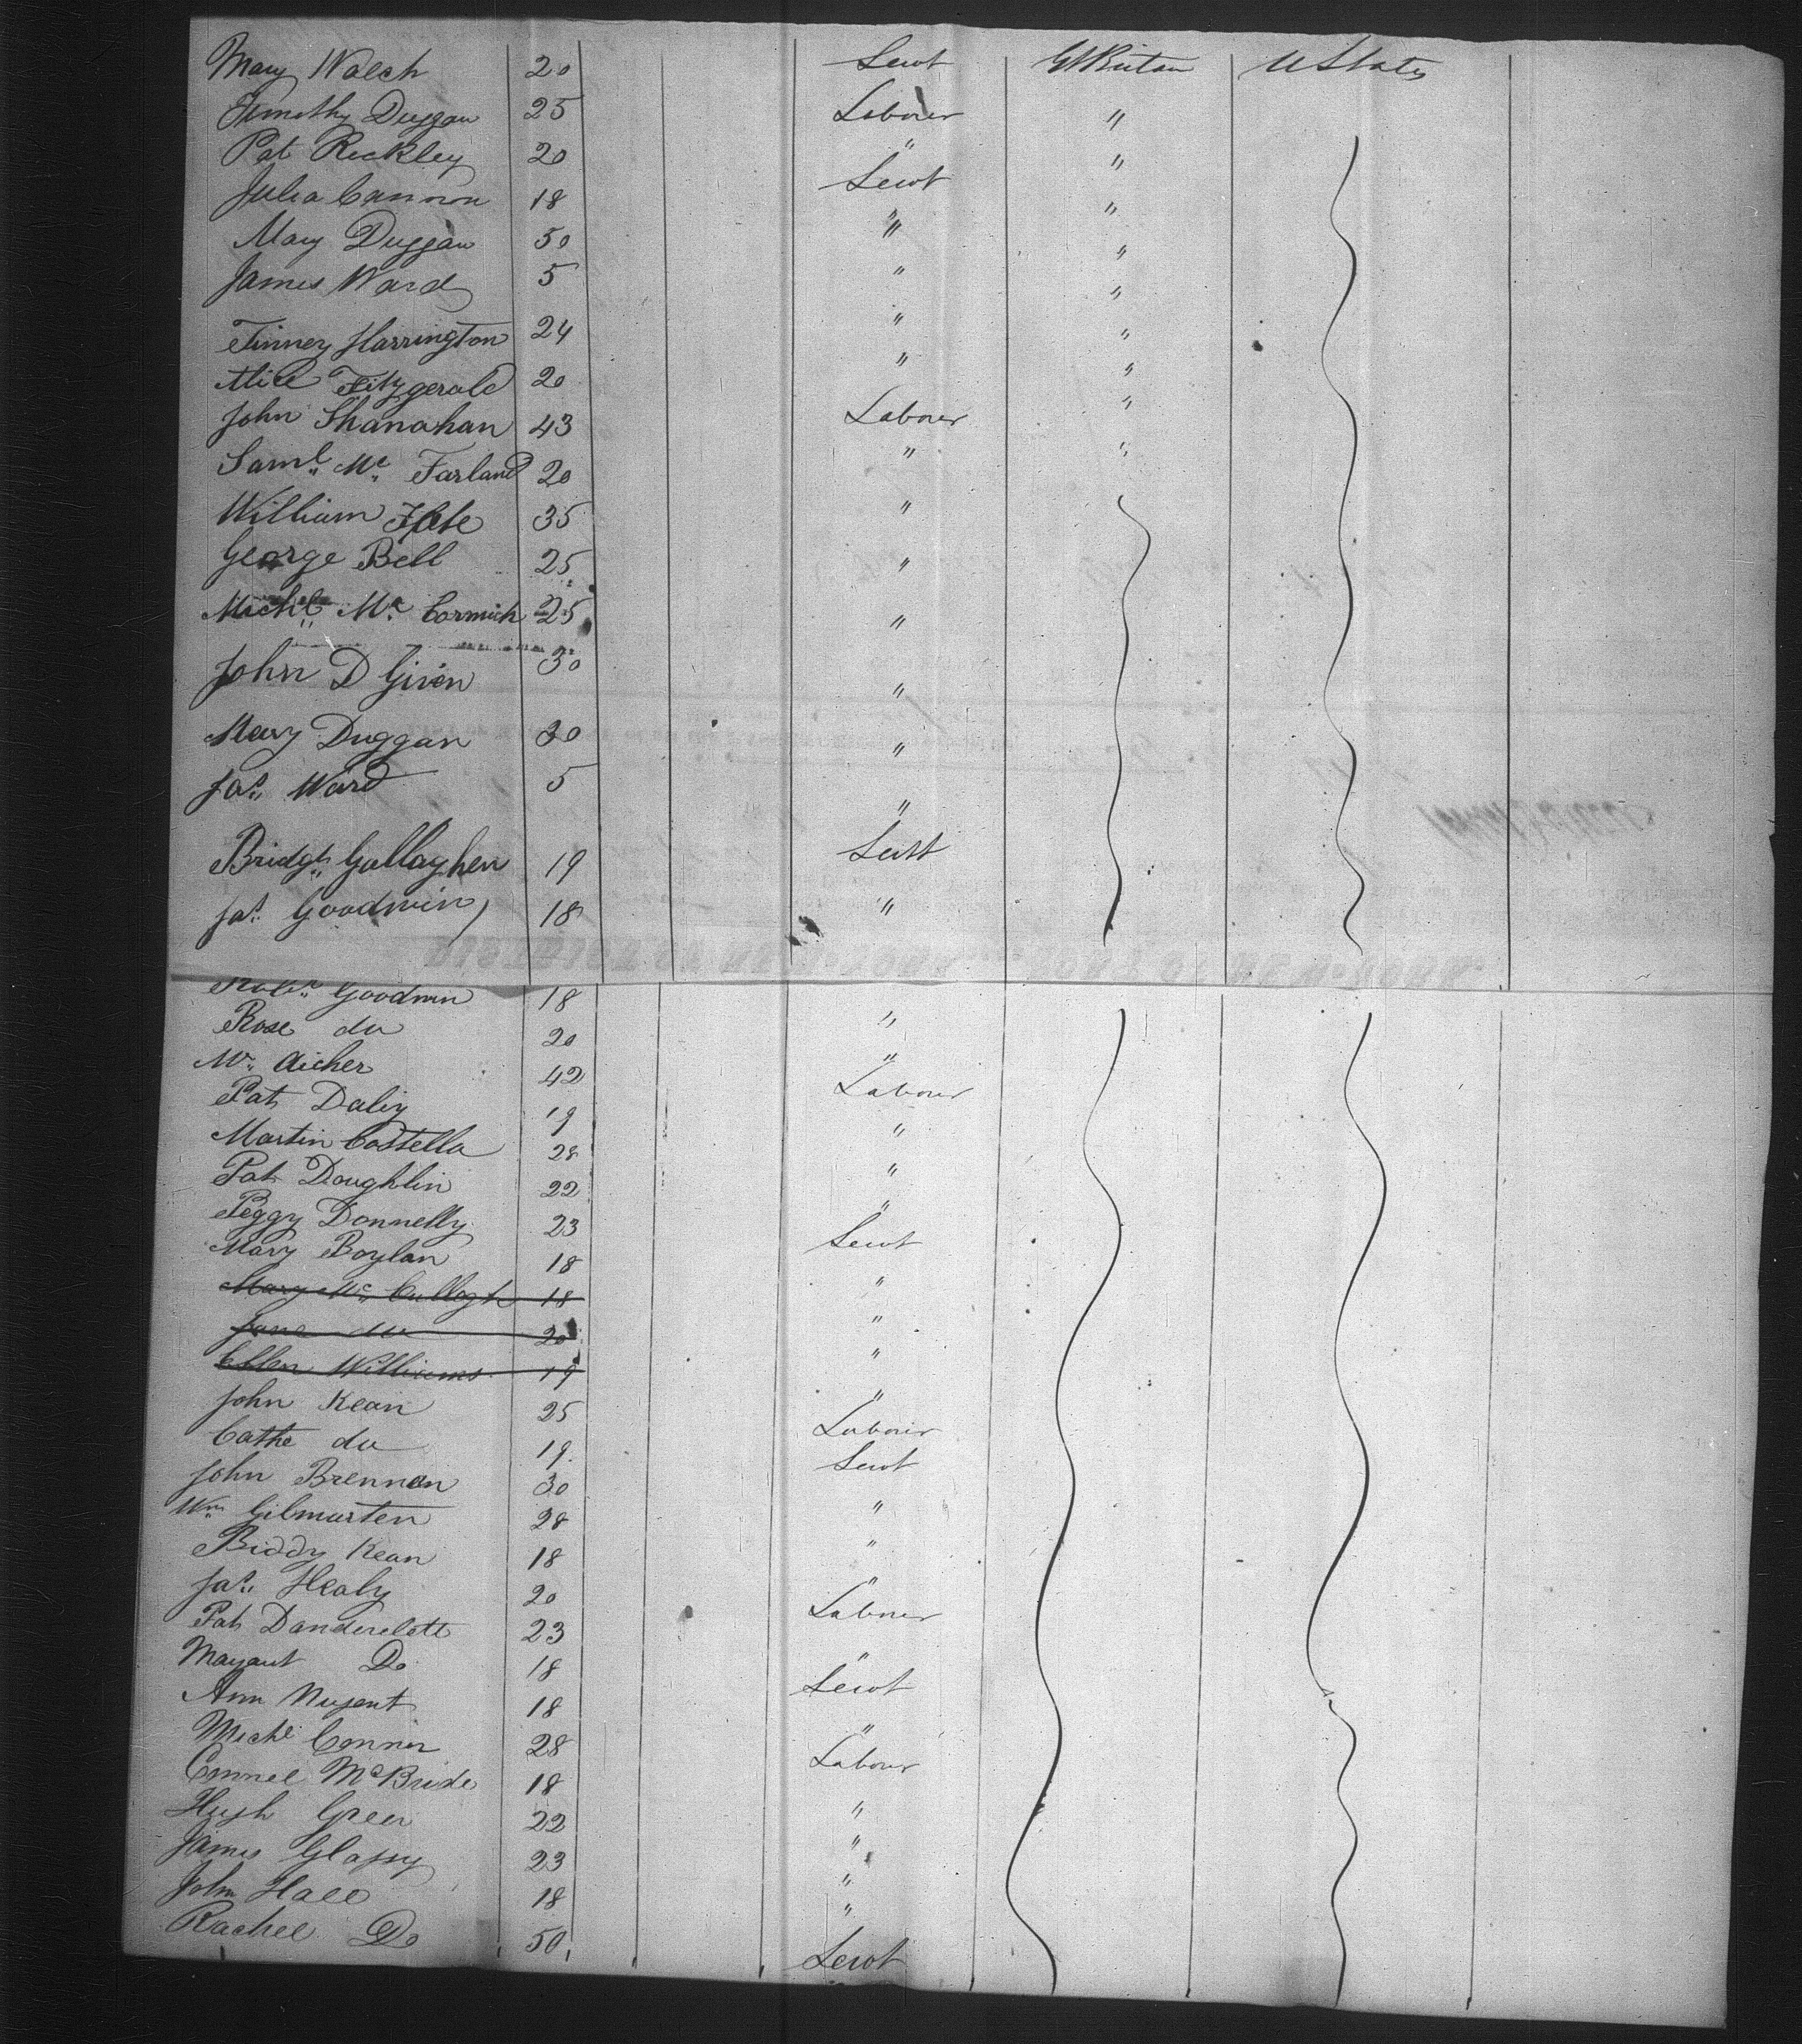 Mary Walch 20 Servt G Britain U States
Timothy Duggan 25 Labourer "
Pat Reckley 20 " "
Julia Cannon 18 Servt "
Mary Duggan 50 " "
James Ward 5 " "
Finney Harrington 24 " "
Alice Fitzgerald 20 " "
John Shanahan 43 Labourer "
Saml. Mc. Farland 20 " "
William 35 "
George Bell 25 "
Michl. Mc. Cormick 25 "
John D Given 30 "
Mary Duggan 30 "
Jas. Ward 5 "
Bridgt. Gallagher 19 Servt
Jas. Goodwin 18 "
Goodwin 18 "
Rose do 20 "
Mc. Aicher 42 Labourer
Pat Daly 19 "
Martin Costella 28 "
Pat Doughlin 22 "
Peggy Donnelly 23 Servt
Mary Boylan 18 "
Mary Mc. Cullogh 18 "
Jane do 20 "
Ellen Williams 19 "
John Kean 25 Labourer
Cathe do 19 Servt
John Brennan 30 "
Wm. Gilmarten 28 "
Biddy Kean 18 "
Jas. Healy 20 Labourer
Pat 23 "
Do 18 Servt
Ann Nugent 18 "
Michl Conner 28 Labourer
Connel McBride 18 "
Hugh Greer 22 "
James Glassy 23 "
John Hall 18 "
Rachel Do 50 Servt